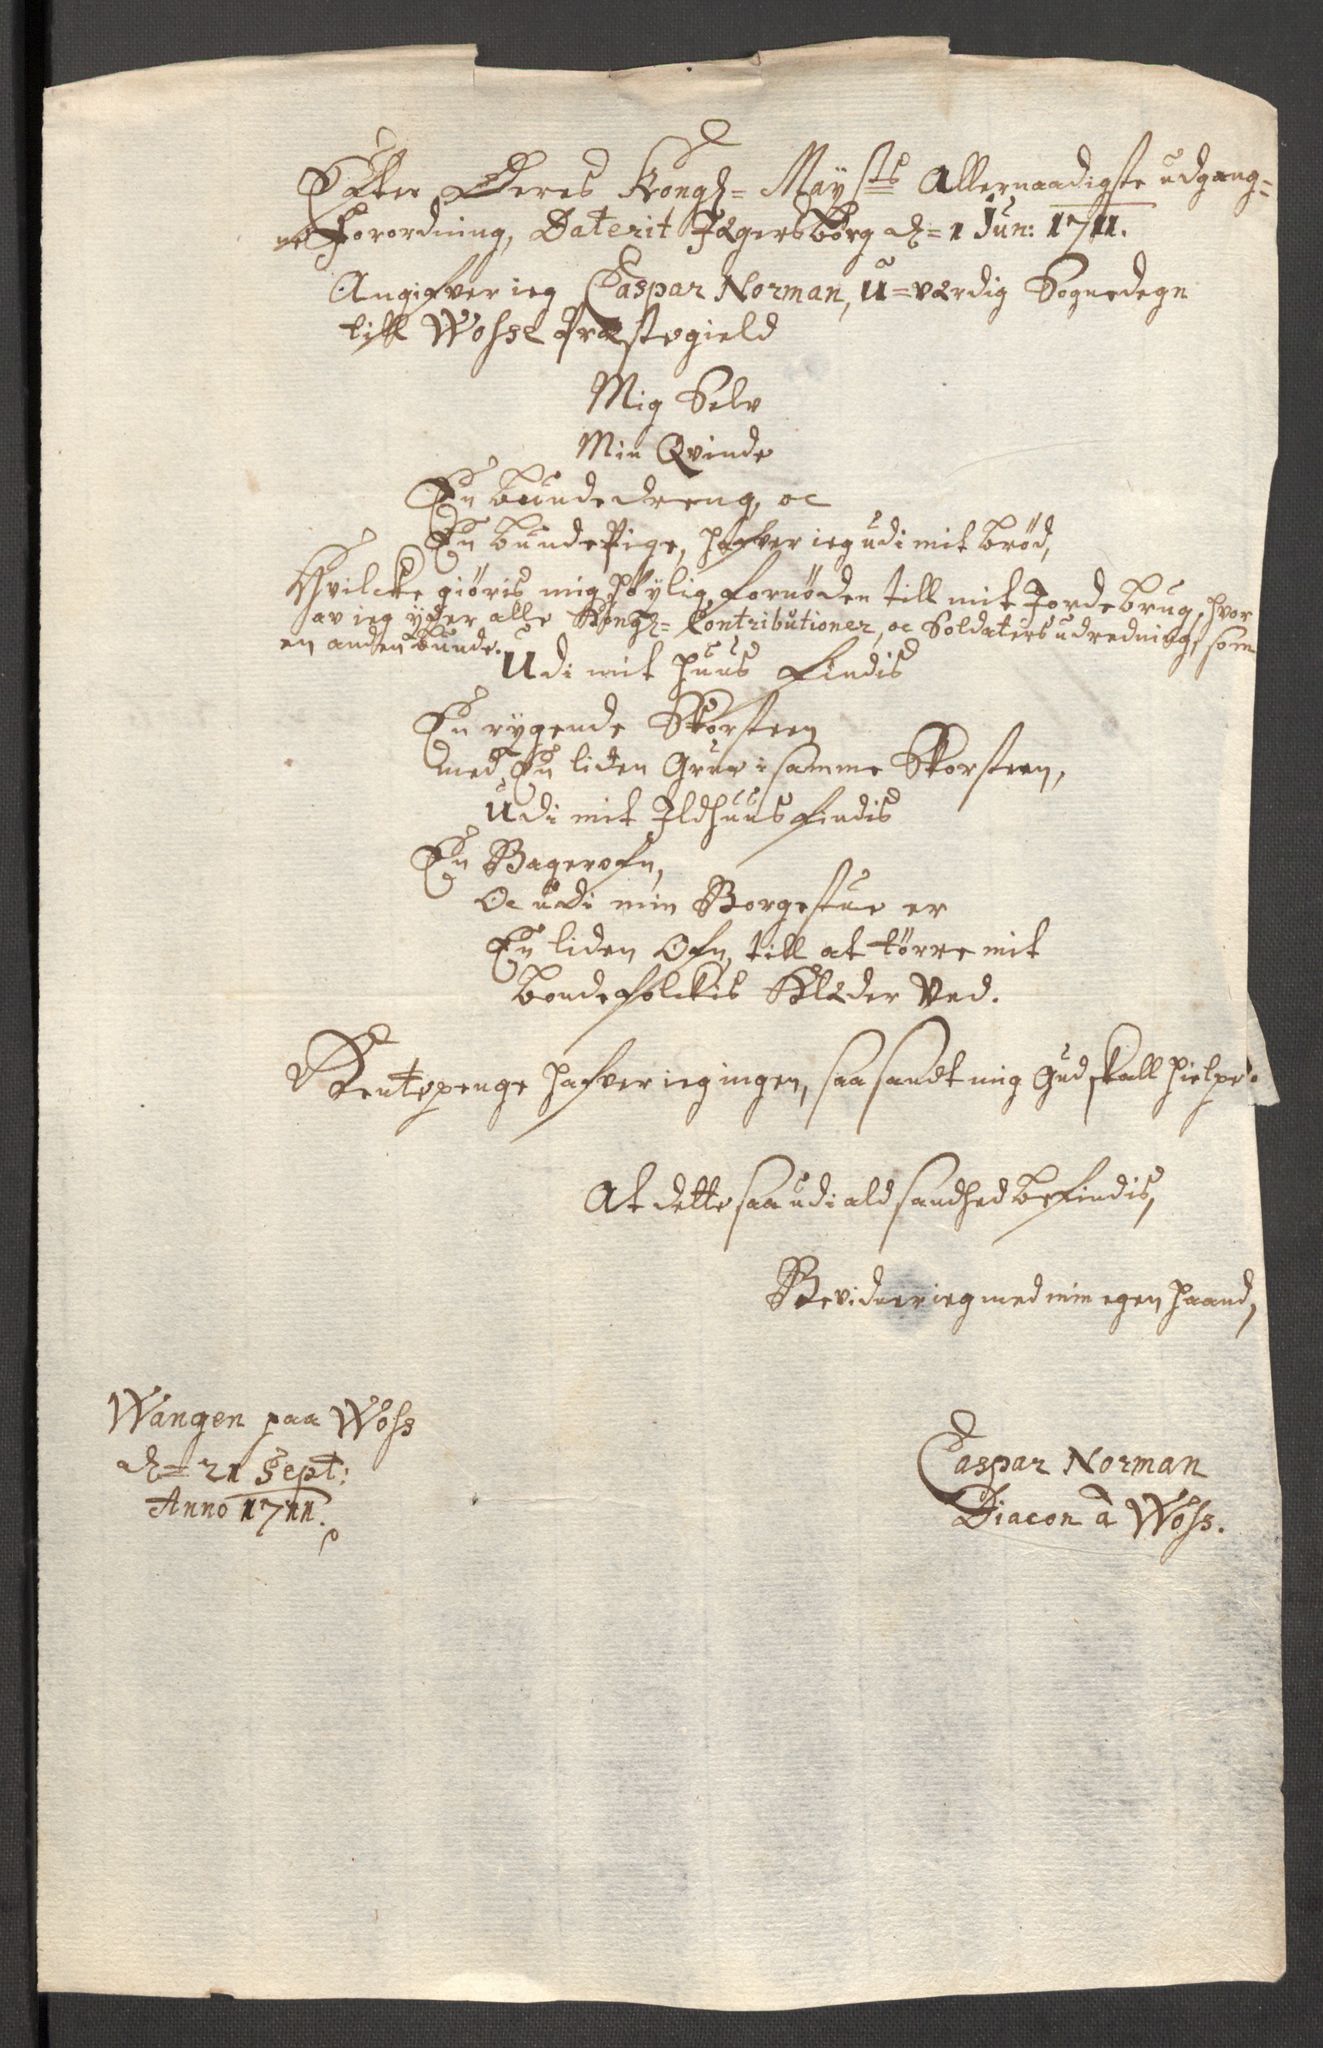 Effter Deres Kongl= Maysts Allernaadigste udgang=
ne Forordning, Daterit Jægersborg d= 1 Jun: 1711.
Angifver ieg Caspar Norman, U=værdig Sognedegn
till Woss Præstegield
Mig Selv
Min Qvinde
En bundedreng, oc
En bunde Pige, hafver ieg udi mit brød,
Hvilcke giøris mig høylig fornøden till mit Jordebrug, hvor
av ieg yder alle Kongl= Contributioner, oc Soldaters udredning, som
en anden bunde.
Udi mit huus findis
En rygende Skorsteen
med En liden Grue i samme Skorsteen,
Udi mit Ildhuus findis
En Bagerofn,
Oc udi min Borgestue er
En liden Ofn, till at tørre mit
bondefolckis Klæder ved.
Rentepenge hafver ieg ingen, saa sandt mig Gud skall hielpe.
At dette saa udi ald sandhed befindis,
Bevidner ieg med min egen haand,
Wangen paa Woss
d= 21 Sept:
Anno 1711.
Caspar Norman
Diacon â Woss.